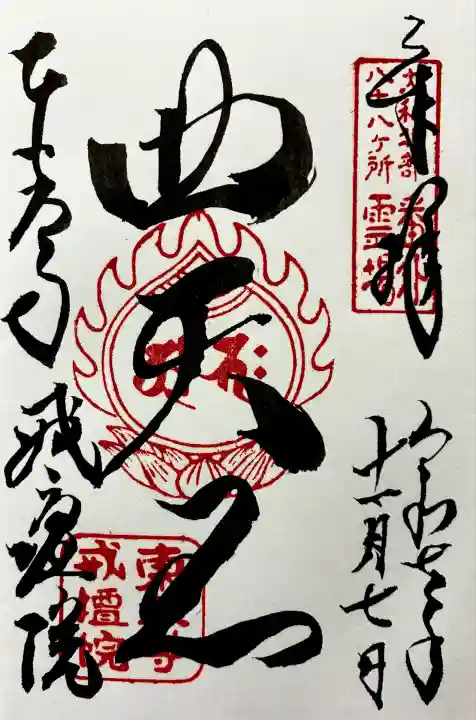 奉拝
大和北部
八十八ヶ所
霊場
十一月七日
四天王
東大寺
戒壇院
東大寺
戒壇院